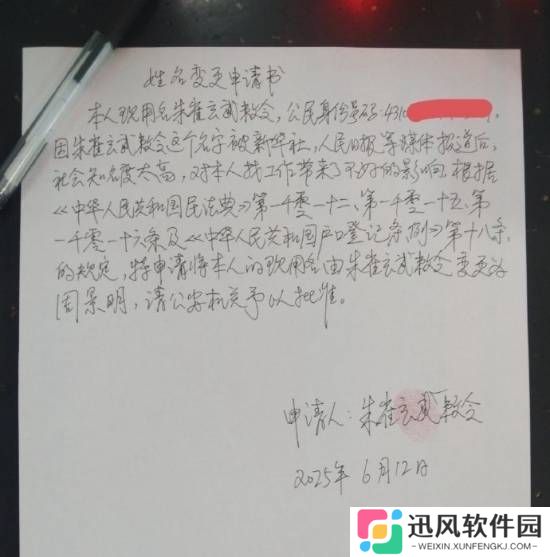 姓名变更申请书
本人现用名朱雀玄武敕令，公民身份号码：4310
因朱雀玄武敕令这个名字被新华社，人民日报等媒体报道后，
社会知名度太高，对本人找工作带来了不好的影响。根据
《中华人民共和国民法典》第一千零一十二、第一千零一十五、第
一千零一十六条及《中华人民共和国户口登记条例》第十八条
的规定，特申请将本人的现用名由朱雀玄武敕令变更为
周景明，请公安机关予以批准。
申请人：朱雀玄武敕令
2025年 6月12日
迅风软件园
WEIXIN.XUNFENGKJ.COM